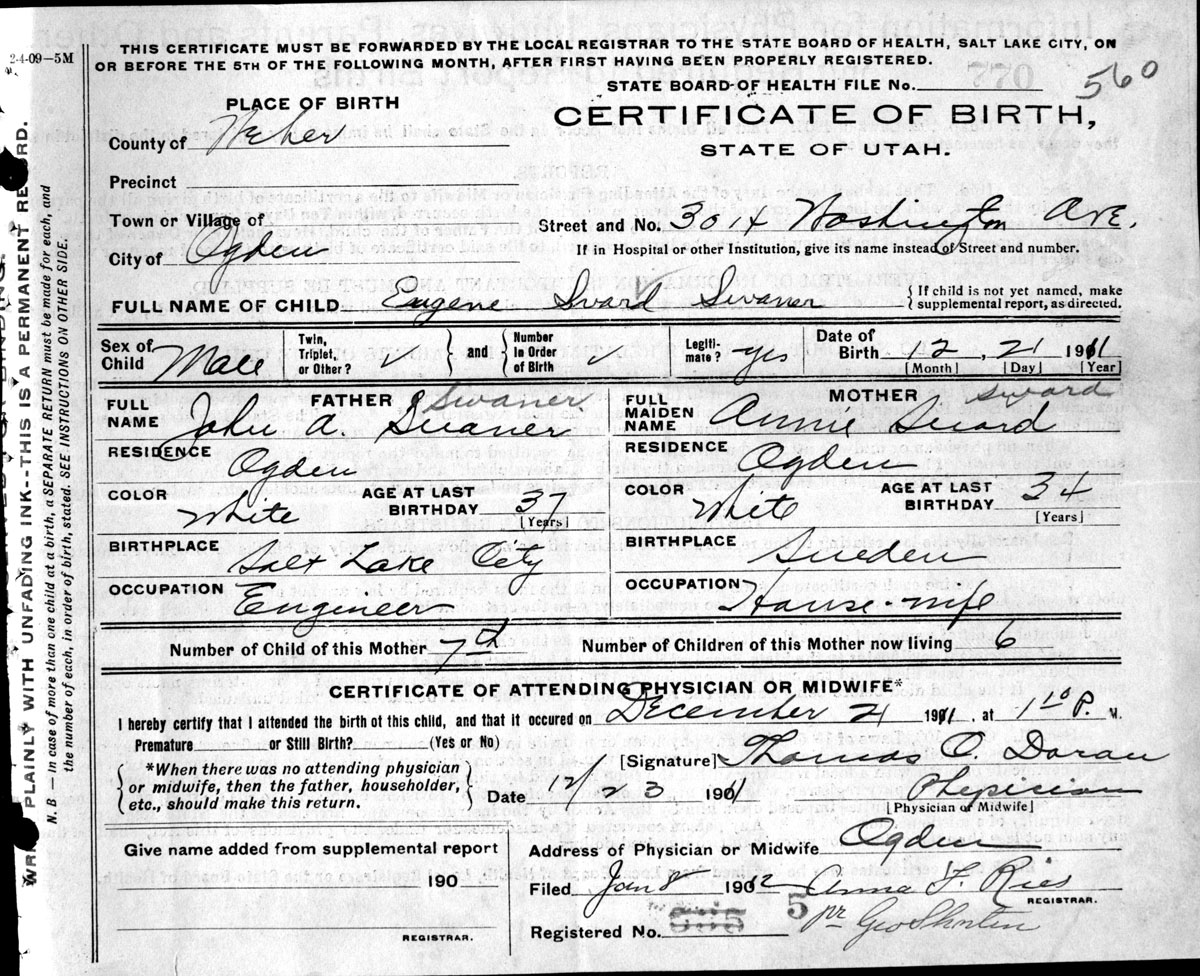 2-4-09—5M
THIS CERTIFICATE MUST BE FORWARDED BY THE LOCAL REGISTRAR TO THE STATE BOARD OF HEALTH, SALT LAKE CITY, ON
OR BEFORE THE 5TH OF THE FOLLOWING MONTH, AFTER FIRST HAVING BEEN PROPERLY REGISTERED.
STATE BOARD OF HEALTH FILE No. 560
PLACE OF BIRTH
CERTIFICATE OF BIRTH,
STATE OF UTAH.
County of Weber
Precinct
Town or Village of
City of Ogden
Street and No. 3014 Washington Ave.
If in Hospital or other Institution, give its name instead of Street and number.
FULL NAME OF CHILD Eugene Sward Swaner { If child is not yet named, make supplemental report, as directed.
Sex of Child Male Twin, Triplet, or Other? } and { Number in Order of Birth Legiti-mate? yes Date of Birth 12, 21 1911
[Month] [Day] [Year]
FATHER Swaner
FULL NAME John A. Swaner
RESIDENCE Ogden
COLOR White AGE AT LAST BIRTHDAY 37
[Years]
BIRTHPLACE Salt Lake City
OCCUPATION Engineer
MOTHER Sward
FULL MAIDEN NAME Annie Sward
RESIDENCE Ogden
COLOR White AGE AT LAST BIRTHDAY 34
[Years]
BIRTHPLACE Sweden
OCCUPATION House-wife
Number of Child of this Mother 7th Number of Children of this Mother now living 6
CERTIFICATE OF ATTENDING PHYSICIAN OR MIDWIFE*
I hereby certify that I attended the birth of this child, and that it occured on December 21 1911, at 1 10 P. M.
Premature or Still Birth? (Yes or No)
{ *When there was no attending physician or midwife, then the father, householder, etc., should make this return. }
[Signature] Thomas C. Doran
Date 12/23 1901 Physician
[Physician or Midwife]
Give name added from supplemental report
190
REGISTRAR.
Address of Physician or Midwife Ogden
Filed Jan 8 1912 Anna F. Ries
REGISTRAR.
Registered No. 5
pr Geo Shorten
WRITE PLAINLY WITH UNFADING INK--THIS IS A PERMANENT RECORD.
N. B — in case of more than one child at a birth, a SEPARATE RETURN must be made for each, and
the number of each, in order of birth, stated. SEE INSTRUCTIONS ON OTHER SIDE.